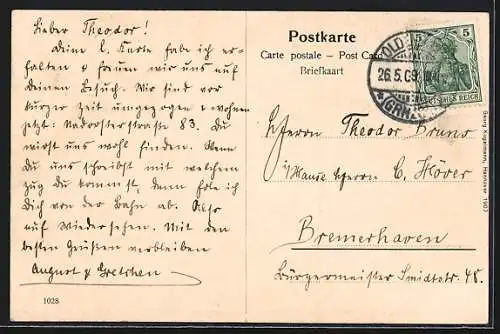 Lieber Theodor!
Deine l. Karte habe ich er-
halten & freuen wir uns auf
Deinen Besuch. Wir sind vor
kurzer Zeit umgezogen & wohnen
jetzt: Nadorsterstraße 83. Du
wirst uns wohl finden. Wenn
Du uns schreibst mit welchem
Zug Du kommst, dann hole ich
Dich von der Bahn ab. Also
auf Wiedersehen. Mit den
besten Grüssen verbleiben
August & Gretchen
1028
Postkarte
Carte postale — Post Card
Briefkaart
5 5
DEUTSCHES REICH
26.5.09.
(GRHZ
Herrn Theodor Bruns
i/Hause Herrn C. Höver
Bremerhaven
Bürgermeister Smidtstr. 48.
Georg Kugelmann, Hannover 1907